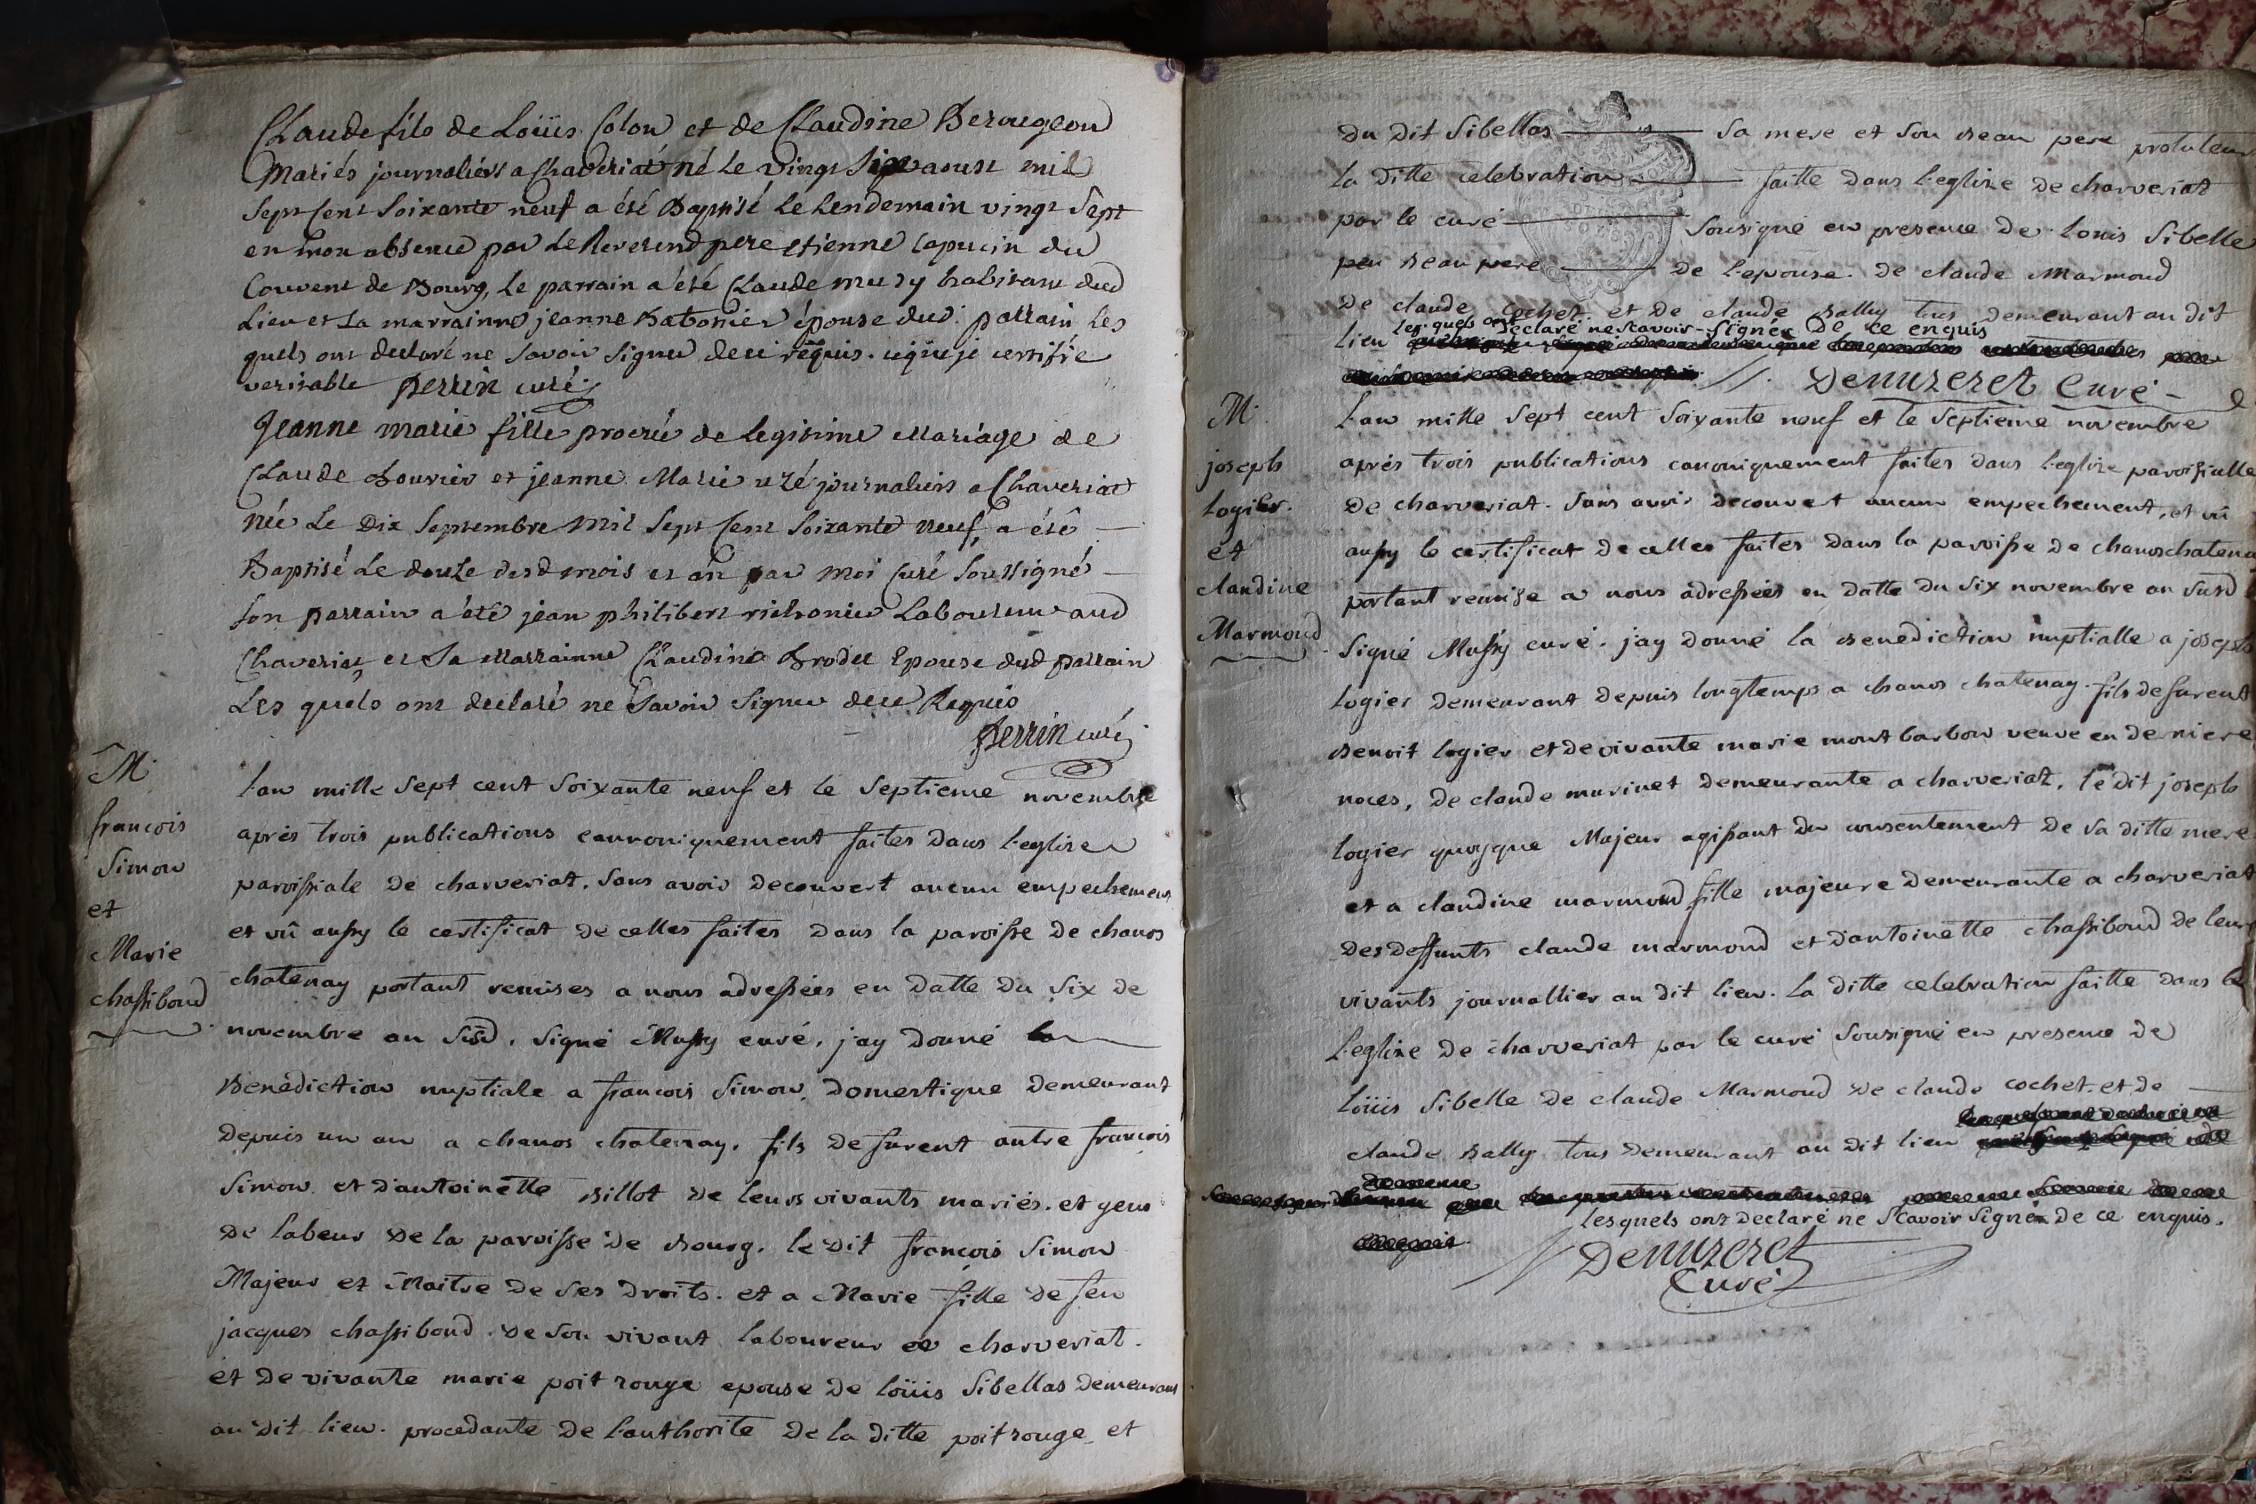 Claude fils de Loüis Colon et de Claudine Berougeon
Mariés journaliérs a Chaveriat né le vingt Six aoust mil
Sept Cent Soixante neuf a été Baptisé Le Lendemain vingt Sept
en mon absence par Le Reverend pere etienne Capucin du
Couvent de Bourg, Le parrain a été Claude mury habitant dud
Lieu et Sa marrainne jeanne épouse dud. parrain Les
quels ont declaré ne Savoir Signer dece requis. ceque je certifie
veritable perrin curé
Jeanne marie fille procréé de legitime Mariage de
Claude Bouvier et jeanne Marie uzé journaliers a Chaveriat
née Le Dix Septembre Mil Sept Cent Soixante neuf, a été
Baptisé Le douze desd mois et an par moi Curé Soussigné
Son parrain a été jean philibert richonier Laboureur aud
Chaveriat et Sa Marrainne Claudine Brodet Epouse dud parrain
Les quels ont declaré ne Savoir Signer dece Requis
perrin curé
M.
francois
Simon
et
Marie
chassiboud
lan mille sept cent soixante neuf et le septieme novembre
aprés trois publications cannoniquement faites dans l'eglize
paroissiale de charveriat. sans avoir decouvert aucun empechement
et vû aussy le certificat de celles faites dans la paroisse de chanos
chatenay portant remises a nous adressées en datte du six de
novembre an susd. signé Mussy curé. j'ay donné la
Benédiction nuptiale a francois Simon, domestique demeurant
depuis un an a chanos chatenay. fils defurent autre francois
Simon et d'antoinette Billot de leurs vivants mariés. et gens
de labeur de la paroisse de Bourg. le dit francois Simon
Majeur et Maitre de ses droits. et a Marie fille de feu
jacques chassiboud. de son vivant laboureur a charveriat.
et de vivante marie poit rouge epouse de loüis Sibellas demeurant
au dit lieu. procedante de l'authorite de la ditte poit rouge, et
du dit Sibellas sa mere et son Beau pere protuteur
la ditte celebration faitte dans l'eglize de charveriat
par le curé sousigné en presence de Louis Sibelle
Beau pere de l'epouse. de claude Marmoud
de claude cochet. et de claude Bally tous demeurant au dit
lieu lesquels ont declaré ne scavoir signér de ce enquis
Demuzeret Curé
M.
joseph
logier.
et
claudine
Marmoud
Lan mille sept cent soixante neuf et le septieme novembre
aprés trois publications canoniquement faites dans l'eglize paroissialle
de charveriat. sans avoir decouvert aucun empechement, et vû
aussy le certificat de celles faites dans la paroisse de chanoschatenay
portant remise a nous adressées en datte du six novembre an susd
signé Mussy curé. j'ay donné la Benediction nuptialle a joseph
logier demeurant depuis longtemps a chanos chatenay. fils defurent
Benoit logier et de vivante marie montbarbon veuve en derniere
noces, de claude marinet demeurante a charveriat, le dit joseph
logier quoyque Majeur agissant du consentement de sa ditte mere
et a claudine marmoud fille majeure demeurante a charveriat
des deffunts claude marmoud et d'antoinette chassiboud de leurs
vivants journallier au dit lieu. la ditte celebration faitte dans
l'eglize de charveriat par le curé sousigné en presence de
loüis Sibelle de claude Marmoud de claude cochet et de
claude Bally tous demeurant au dit lieu
lesquels ont declaré ne scavoir signér de ce enquis.
Demuzeret
Curé